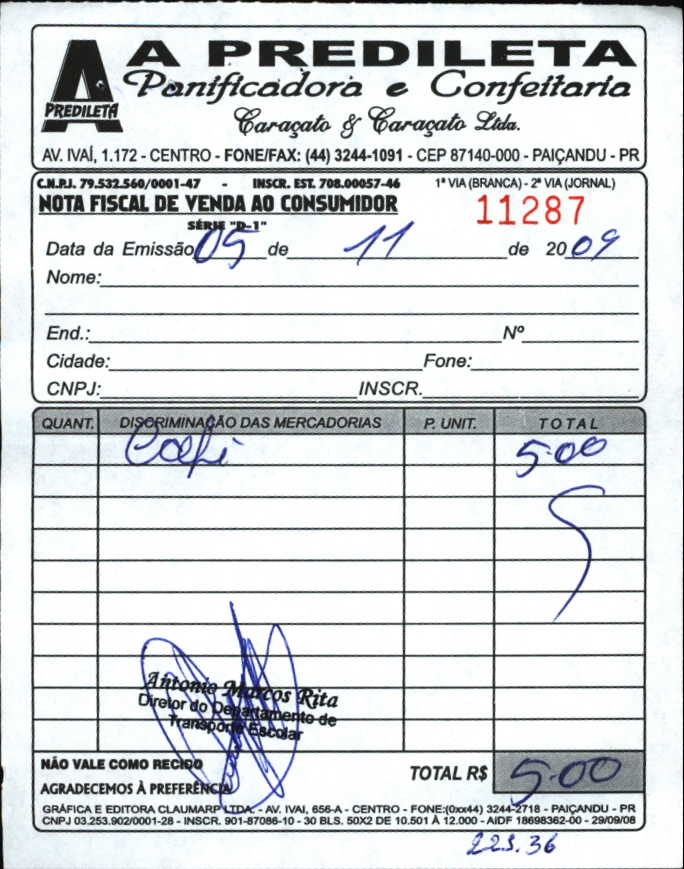 A PREDILETA
PREDILETA
Panificadora e Confeitaria
Caraçato & Caraçato Ltda.
AV. IVAÍ, 1.172 - CENTRO - FONE/FAX: (44) 3244-1091 - CEP 87140-000 - PAIÇANDU - PR
C.N.P.J. 79.532.560/0001-47 - INSCR. EST. 708.00057-46 1ª VIA (BRANCA) - 2ª VIA (JORNAL)
NOTA FISCAL DE VENDA AO CONSUMIDOR 11287
SÉRIE "D-1"
Data da Emissão 05 de 11 de 2009
Nome:
End.: Nº
Cidade: Fone:
CNPJ: INSCR.
QUANT. DISCRIMINAÇÃO DAS MERCADORIAS P. UNIT. TOTAL
Café 5.00
Antonio Marcos Rita
Diretor do Departamento de
Transporte Escolar
NÃO VALE COMO RECIBO
TOTAL R$ 5.00
AGRADECEMOS À PREFERÊNCIA
GRÁFICA E EDITORA CLAUMARP LTDA. - AV. IVAI, 656-A - CENTRO - FONE:(0xx44) 3244-2718 - PAIÇANDU - PR
CNPJ 03.253.902/0001-28 - INSCR. 901-87086-10 - 30 BLS. 50X2 DE 10.501 À 12.000 - AIDF 18698362-00 - 29/09/08
223.36